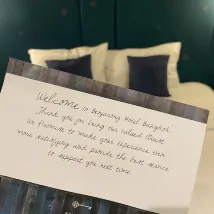 Welcome to Benyasiri Hotel Bangkok.
Thank you for being our valued Guest
We Promise to make your experience even
more Satisfying and provide the best service
to support you next time.